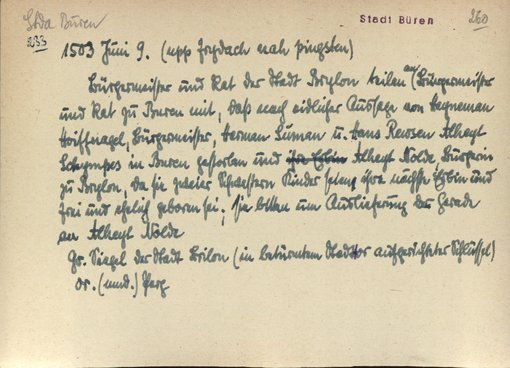 Stda Büren
Stadt Büren
260
233
1503 Juni 9. (upp frydach nah pingsten)
Bürgermeister und Rat der Stadt Brylon teilen an Bürgermeister
und Rat zu Buren mit, daß nach eidlicher Aussage von Heyneman
Hoiffnagel, Bürgermeister, Herman Suman u. Hans Reussen Alheyt
in Buren gestorben und ihre Erbin Alheyt Nolde Bürgerin
zu Brylon, da sie zweier Schwestern Kinder seien, ihre nächste Erbin und
frei und ehelich geboren sei; sie bitten um Auslieferung der Gerade
an Alheyt Nolde
Gr. Siegel der Stadt Brilon (in betürmtem Stadttor aufgerichteter Schlüssel)
Or. (mnd.) Perg